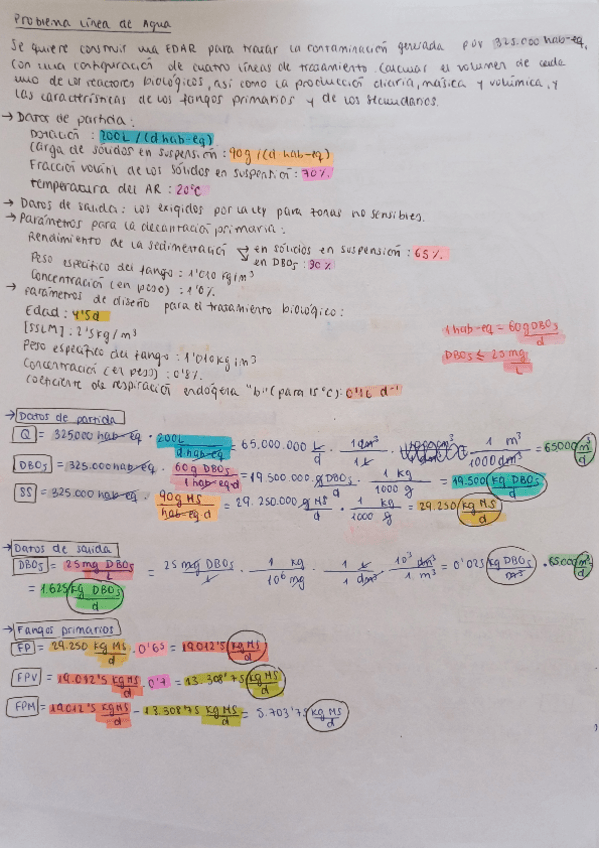 Problema Línea de Agua
Se quiere construir una EDAR para tratar la contaminación generada por 325.000 hab-eq,
con una configuración de cuatro líneas de tratamiento. Calcular el volumen de cada
uno de los reactores biológicos, así como la producción diaria, másica y volúmica, y
las características de los fangos primarios y de los secundarios.
→ Datos de partida:
Dotación: 200L/(d hab-eq)
Carga de sólidos en suspensión: 90g/(d hab-eq)
Fracción volátil de los sólidos en suspensión: 70%
Temperatura del AR: 20°C
→ Datos de salida: los exigidos por la ley para zonas no sensibles.
→ Parámetros para la decantación primaria:
Rendimiento de la sedimentación → en sólidos en suspensión: 65%
→ en DBO5: 30%
Peso específico del fango: 1'010 kg/m³
Concentración (en peso): 1'0%
→ Parámetros de diseño para el tratamiento biológico:
Edad: 4'5d
[SSLM]: 2'5kg/m³
Peso específico del fango: 1'010kg/m³
Concentración (en peso): 0'8%
Coeficiente de respiración endógena "b" (para 15°C): 0'16 d⁻¹
1 hab-eq = 60g DBO5/d
DBO5 ≤ 25 mg/L
→ Datos de partida
Q = 325.000 hab-eq · 200L/d hab-eq = 65.000.000 L/d · 1dm³/1L · 1 m³/1000dm³ = 65000 m³/d
DBO5 = 325.000 hab-eq · 60g DBO5/1 hab-eq d = 19.500.000 g DBO5/d · 1 kg/1000 g = 19.500 kg DBO5/d
SS = 325.000 hab-eq · 90g MS/hab-eq d = 29.250.000 g MS/d · 1 kg/1000 g = 29.250 kg MS/d
→ Datos de salida
DBO5 = 25mg DBO5/L = 25 mg DBO5/L · 1 kg/10⁶ mg · 1 L/1 dm³ · 10³ dm³/1 m³ = 0'025 kg DBO5/m³ · 65000 m³/d
= 1.625 kg DBO5/d
→ Fangos primarios
FP = 29.250 kg MS/d · 0'65 = 19.012'5 kg MS/d
FPV = 19.012'5 kg MS/d · 0'7 = 13.308'75 kg MS/d
FPM = 19.012'5 kg MS/d - 13.308'75 kg MS/d = 5.703'75 kg MS/d